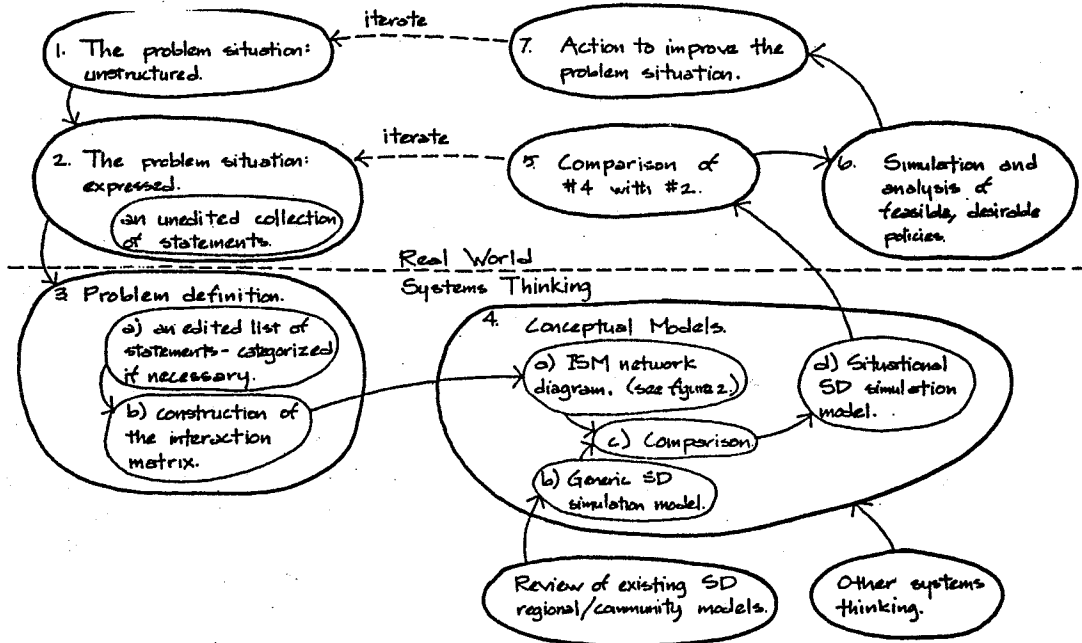 1. The problem situation:
unstructured.
iterate
7. Action to improve the
problem situation.
2. The problem situation:
expressed.
an unedited collection
of statements.
iterate
5. Comparison of
#4 with #2.
6. Simulation and
analysis of
feasible, desirable
policies.
Real World
Systems Thinking
3. Problem definition.
a) an edited list of
statements - categorized
if necessary.
b) construction of
the interaction
matrix.
4. Conceptual Models.
a) ISM network
diagram. (see figure 2.)
c) Comparison.
b) Generic SD
simulation model.
d) Situational
SD simulation
model.
Review of existing SD
regional/community models.
Other systems
thinking.